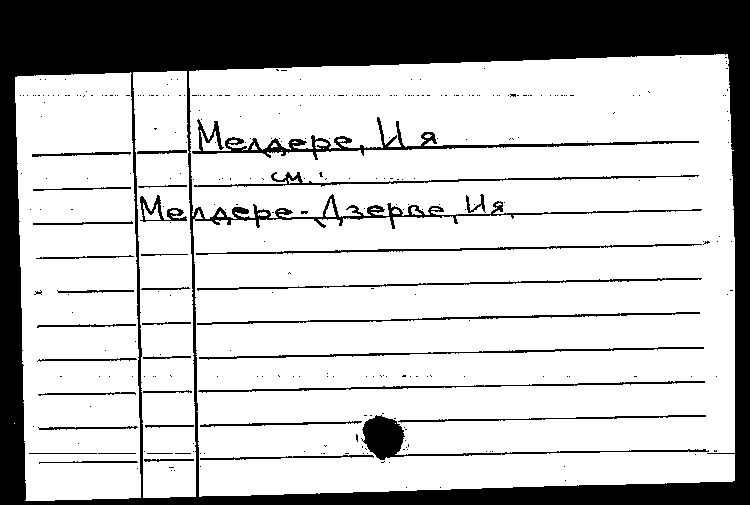 Мелдере, Ия
см.:
Мелдере-Дзерве, Ия.